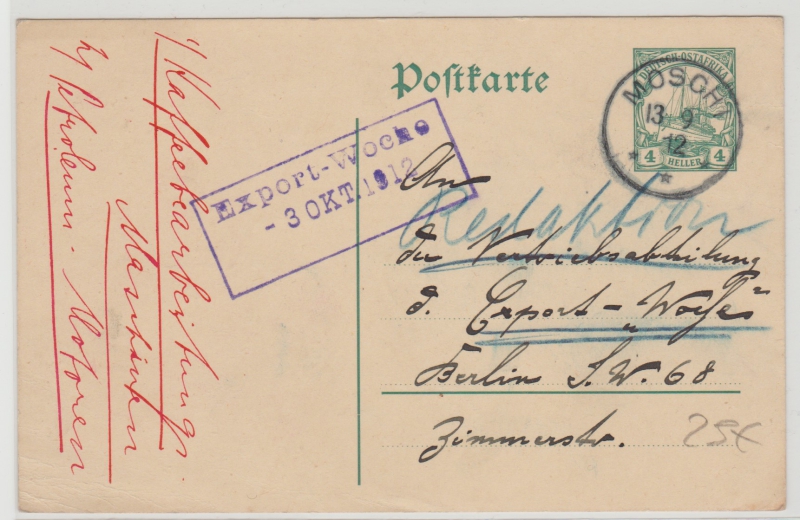 1/ Kaffeebearbeitungs-
Maschinen
2/ Petroleum-Motoren
Postkarte
DEUTSCH-OSTAFRIKA
4 HELLER 4
MOSCHI
13 9
12
Export-Woche
- 3 OKT. 1912
An
Redaktion
die Vertriebsabteilung
d. Export-„Woche"
Berlin S.W. 68
Zimmerstr.